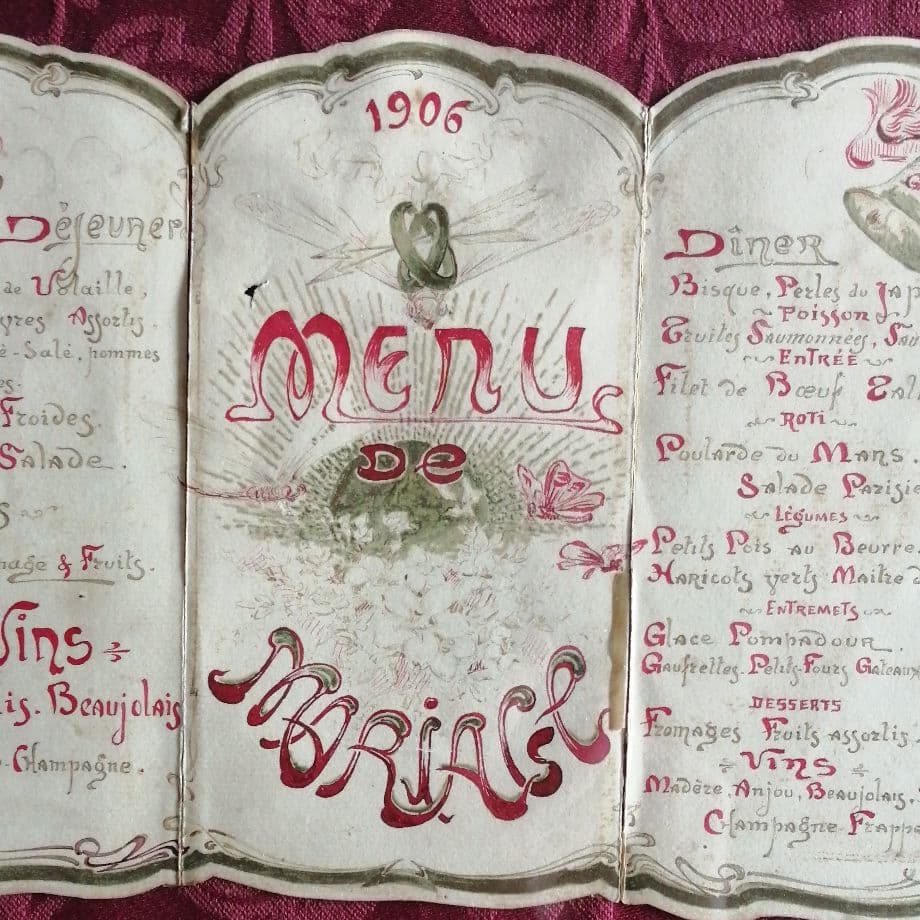 Déjeuner
de Volaille,
Assortis.
é-Salé, pommes
es.
Froides
Salade.
& Fruits.
Vins
is. Beaujolais
Champagne.
1906
Menu
De
Mariage
Dîner
Bisque, Perles du Jap
Poisson
Truites Saumonnées, Sau
Entrée
Filet de Bœuf
Roti
Poularde du Mans.
Salade Parisie
Légumes
Petits Pois au Beurre
Haricots verts Maitre d
Entremets
Glace Pompadour
Gaufrettes. Petits-Fours Gateaux
Desserts
Fromages Fruits assortis.
Vins
Madère, Anjou, Beaujolais,
Champagne Frapp